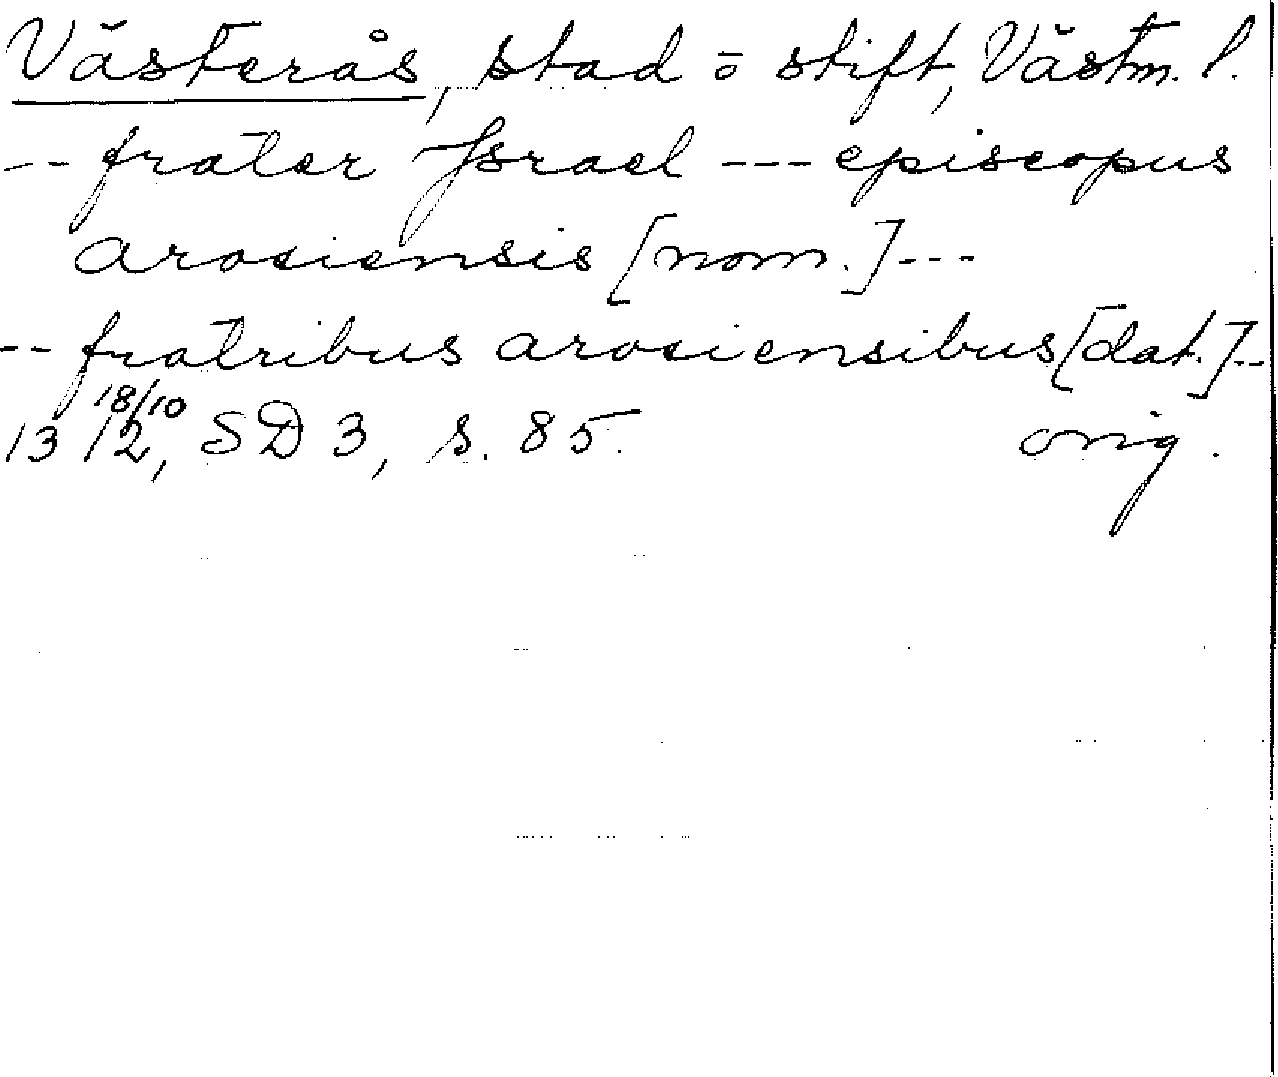 Västerås, stad o stift, Västm. l.
-- frater Israel --- episcopus
arosiensis [nom.] ---
-- fratribus arosiensibus [dat.] --
1312 18/10, SD 3, s. 85. orig.